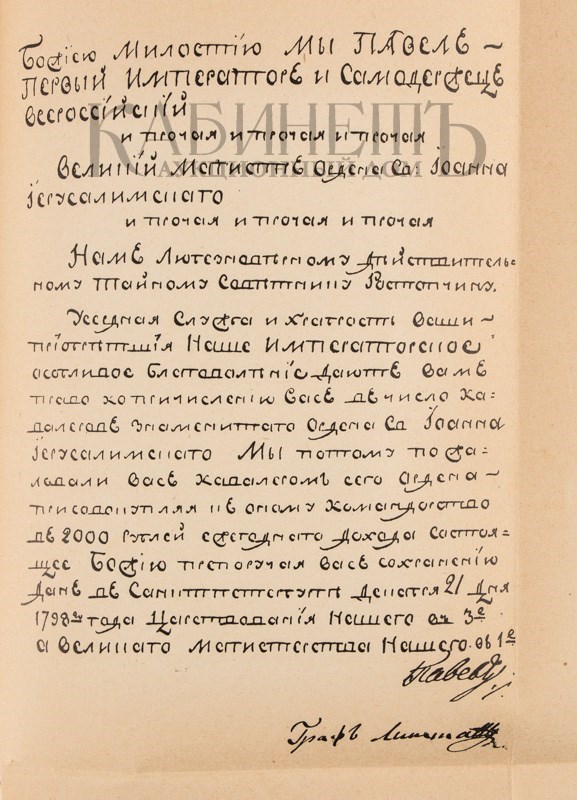 Божіею Милостію Мы Павелъ
Первый Императоръ и Самодержецъ
Всероссійскій
и прочая и прочая и прочая
Великій Магистръ Ордена Св: Іоанна
Іерусалимскаго
и прочая и прочая и прочая
Намъ Любезновѣрному Дѣйствитель=
ному Тайному Совѣтнику Ростопчину.
Усердная Служба и храбрость Ваши
пріобрѣтшія Наше Императорское
особливое благоволѣніе даютъ Вамъ
право ко причисленію Васъ въ число Ка=
валеровъ знаменитаго Ордена Св Іоанна
Іерусалимскаго Мы потому пожа=
ловали Васъ Кавалеромъ сего Ордена
присовокупляя къ оному Командорство
въ 2000 рублей ежегоднаго дохода состоя=
щее Божію препоручая Васъ сохраненію
Данъ въ Санктпетербургѣ Декабря 21 Дня
1798го года Царствованія Нашего въ 3е
а Великаго Магистерства Нашего въ 1е
Павелъ
Графъ
КАБИНЕТЪ
АУКЦИОННЫЙ ДОМ